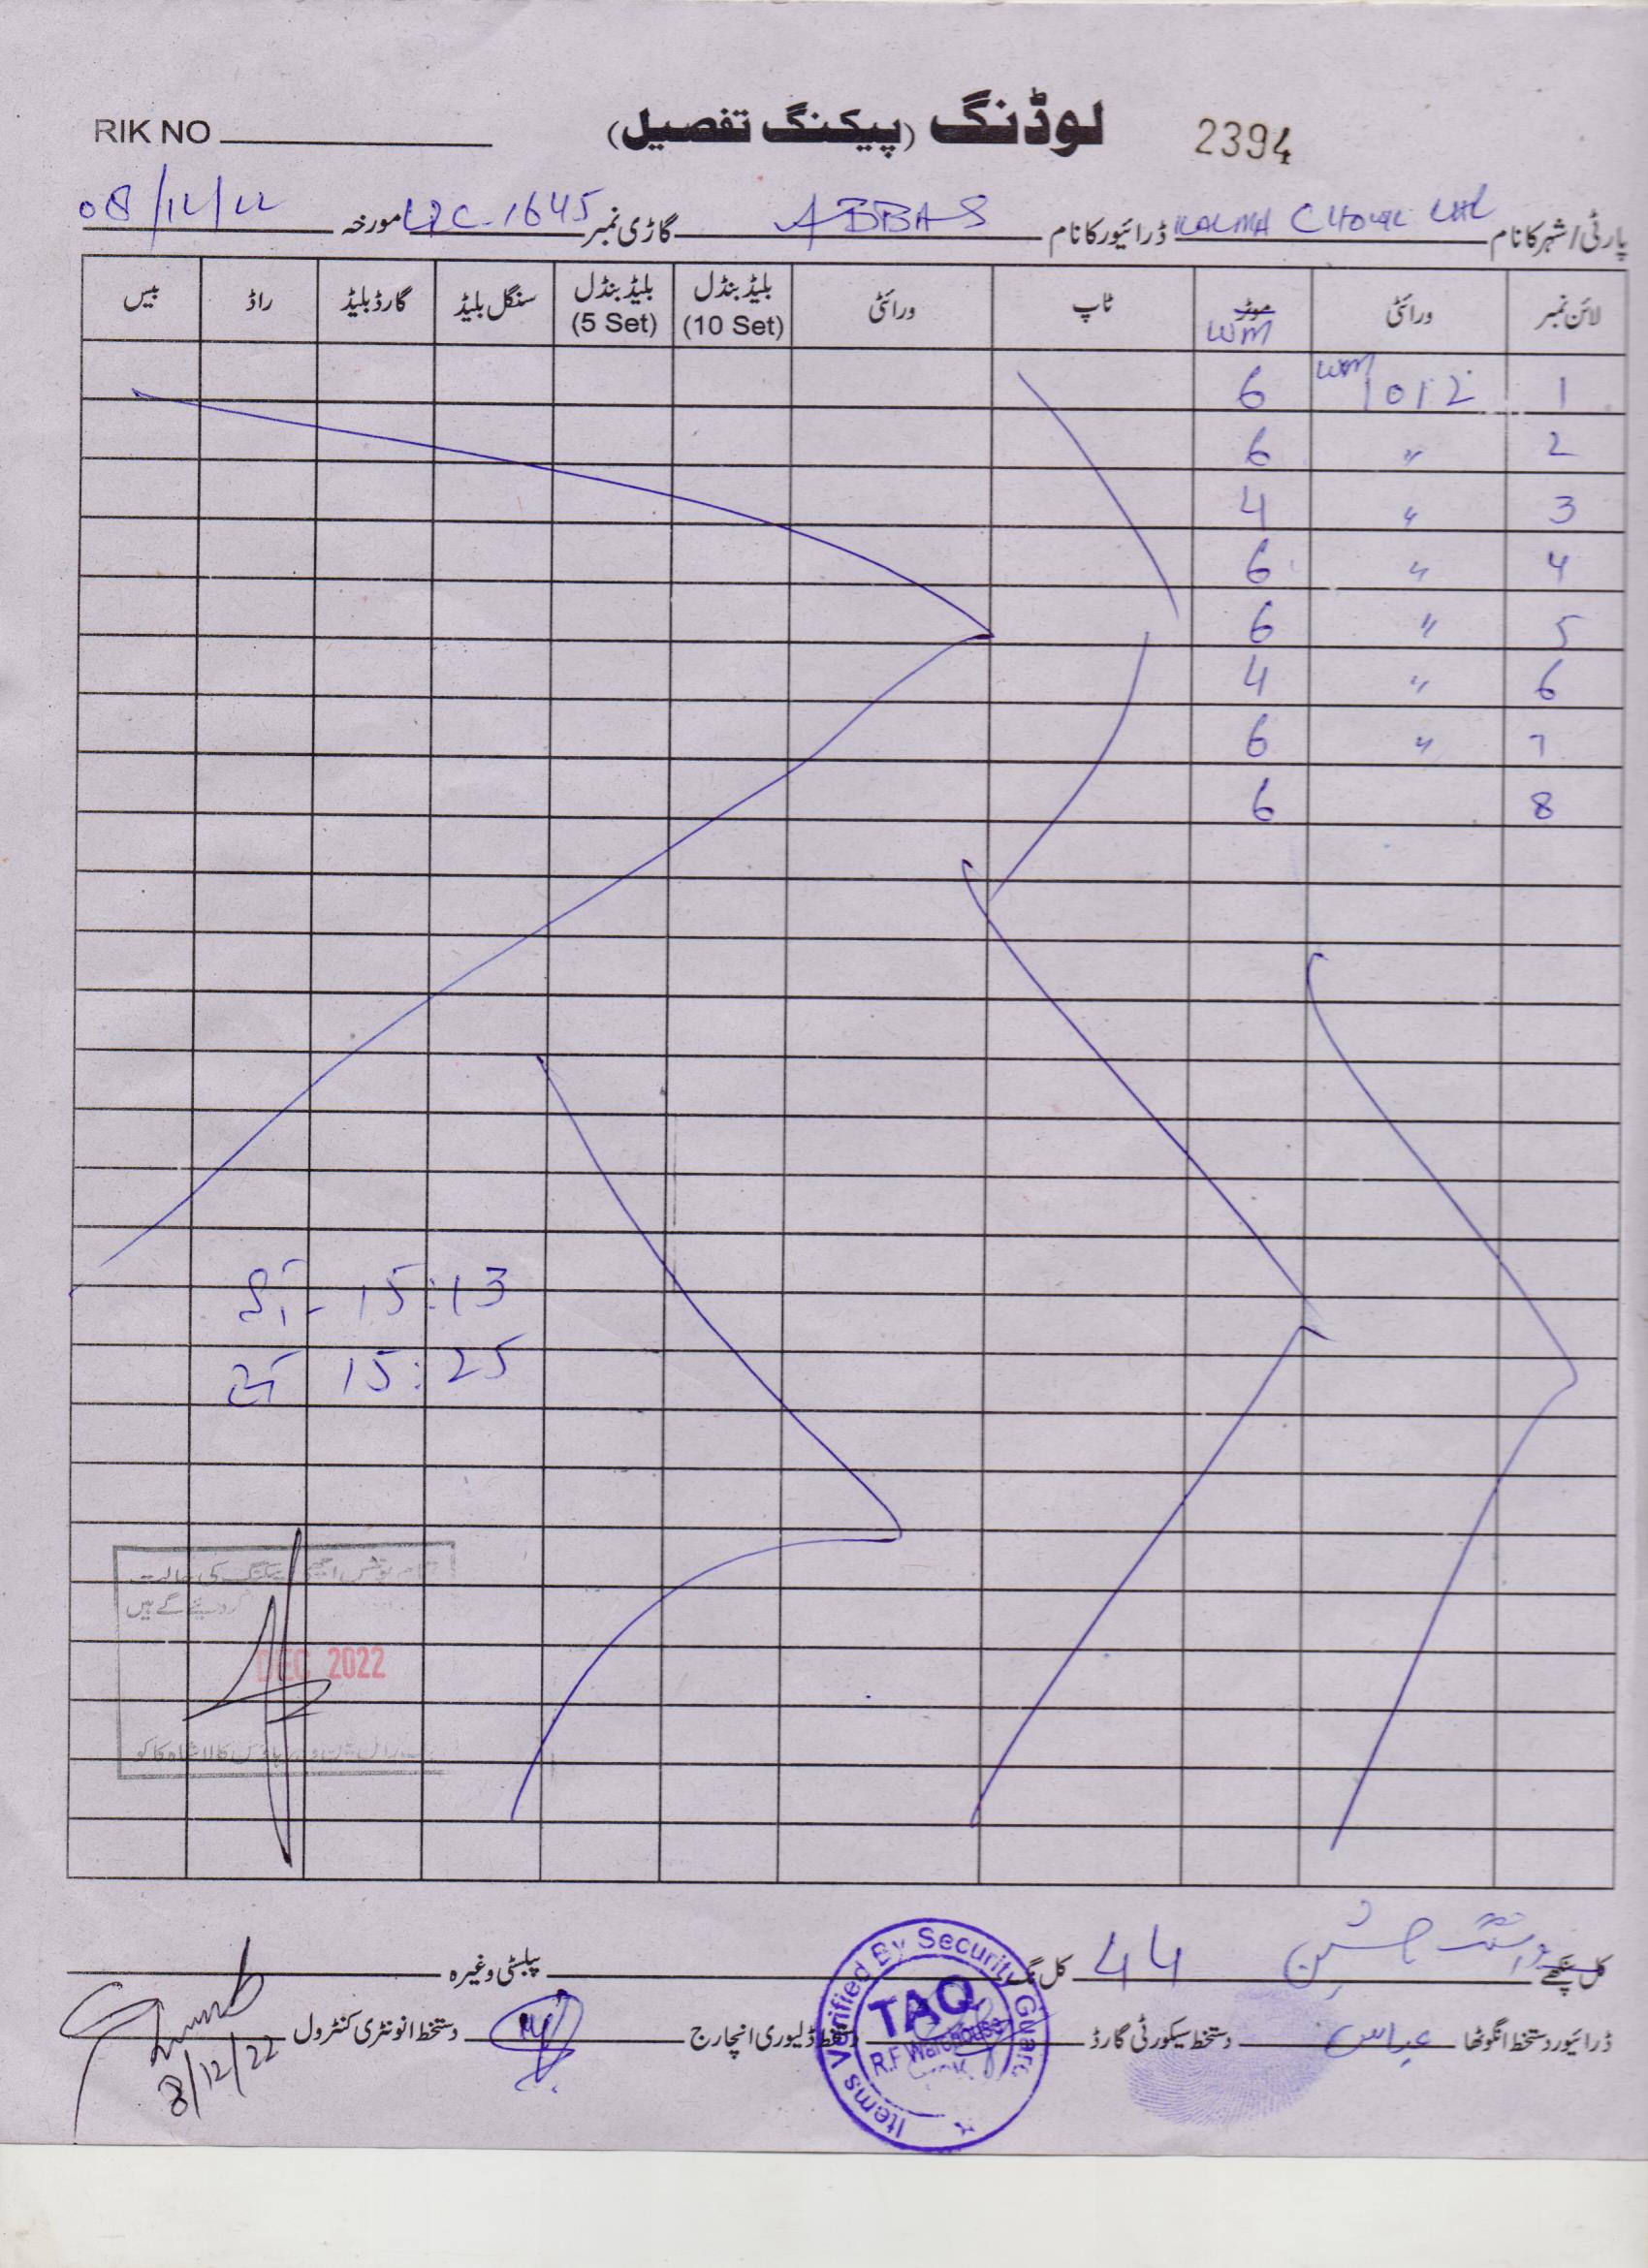 RIK NO لوڈنگ (پیکنگ تفصیل) 2394
پارٹی/شہرکانام KALMA CHOWK LHE ڈرائیورکانام ABBAS گاڑی نمبر 1645 مورخہ 08/12/22
لائن نمبر ورائٹی موٹر WM ٹاپ ورائٹی بلیڈبنڈل (10 Set) بلیڈبنڈل (5 Set) سنگل بلیڈ گارڈبلیڈ راڈ بیس
1 WM 1012 6
2 " 6
3 " 4
4 " 6
5 " 6
6 " 4
7 " 6
8 6
15:13
15:25
پیکنگ کی حالت
کردیئے گے ہیں
DEC 2022
کل پنکھے کل نگ 44 پبلسٹی وغیرہ
ڈرائیوردستخط انگوٹھا عباس دستخط سیکورٹی گارڈ دستخط ڈلیوری انچارج دستخط انونٹری کنٹرول
8/12/22
Items Verified By Security Guard
TAQ
R.F Warehouse